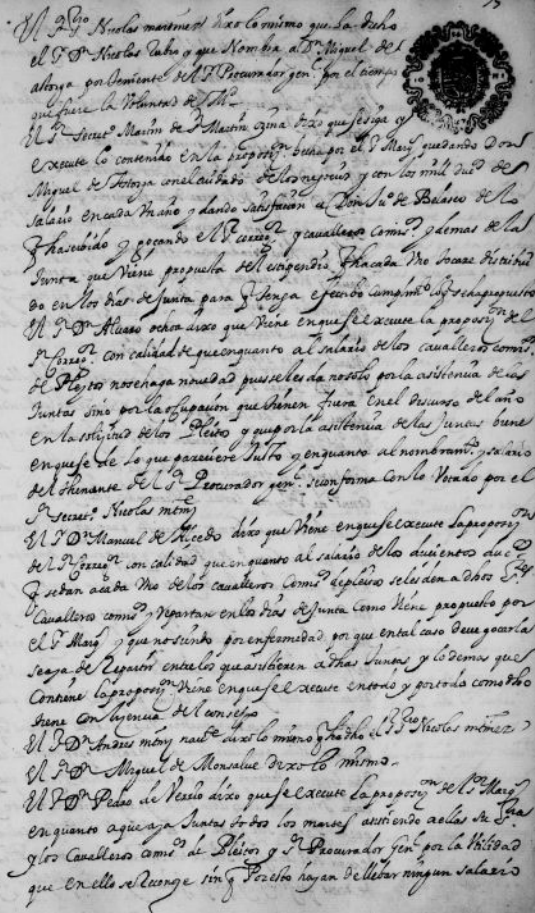 El Sr. Srio Nicolas martinez dixo lo mismo que ha dicho
el Sr. Dn. Nicolas Rubio y que Nombra a Dn. Miguel de
astorga por theniente del Sr. Procurador genl. por el tiempo
que fuere la Voluntad de
El Sr. Secreto. Martin de Sn. Martin dixo que se siga y
execute lo contenido en la proposizn. hecha por el Sr. Marqs quedando Don
Miguel de Astorga con el cuidado de los negocios y con los mill ducs. de
salario en cada Un año y dando satisfacion a Don Juo. de Belasco de lo
q ha seruido y goçando el Sr. Corregor. y cavalleros comiss. y demas de la
Junta que Viene propuesta del estipendio q ha cada Uno tocare distribui
do en los dias de Junta para q tenga efecto el cumplimto. lo q se ha propuesto
El Sr. Dn. Alvaro ochoa dixo que Viene en que se execute la proposizon del
Sr. Corregor. con calidad de que en quanto al salario de los cavalleros comiss.
de Pleytos no se haga novedad pues se les da no solo por la asistencia de las
Juntas sino por la ocupacion que tienen fuera en el discurso del año
en la solizitud de los Pleitos y que por la asistencia de las Juntas biene
en que se de lo que pareciere Justo y en quanto al nombramto. y salario
del theniente del Sr. Procurador genl. se conforma con lo Votado por el
Sr. secreto. Nicolas mrnz
El Sr. Dn. Manuel de Alçedo dixo que Viene en que se execute la proposizn
del Sr. Corregor. con calidad que en quanto al salario de los ducientos ducs.
q se dan a cada Uno de los cavalleros Comiss. de pleitos se les den a dhos Sres
Cavalleros comiss. y repartan en los dias de Junta como Viene propuesto por
el Sr. Marqs y que no siendo por enfermedad, por que en tal caso deve gocarlas
se aya de Repartir entre los que asistieren a dhas Juntas y lo demas que
Contiene la proposizn. Viene en que se execute en todo y por todo como dho
tiene con lizencia del consejo
El Sr. Dn. Andres mrnz dixo lo mismo q ha dho el Sr. Srio Nicolas mrnz
El Sr. Dn. Miguel de Monsalve dixo lo mismo
El Sr. Dn. Pedro de dixo que se execute la proposizn del Sr. Marqs
en quanto a que aya Juntas todos los martes asistiendo a ellas su Sria
y los Cavalleros comiss. de Pleitos y Sr. Procurador Genl. por la Utilidad
que en ello se sin q por esto hayan de llebar ningun salario